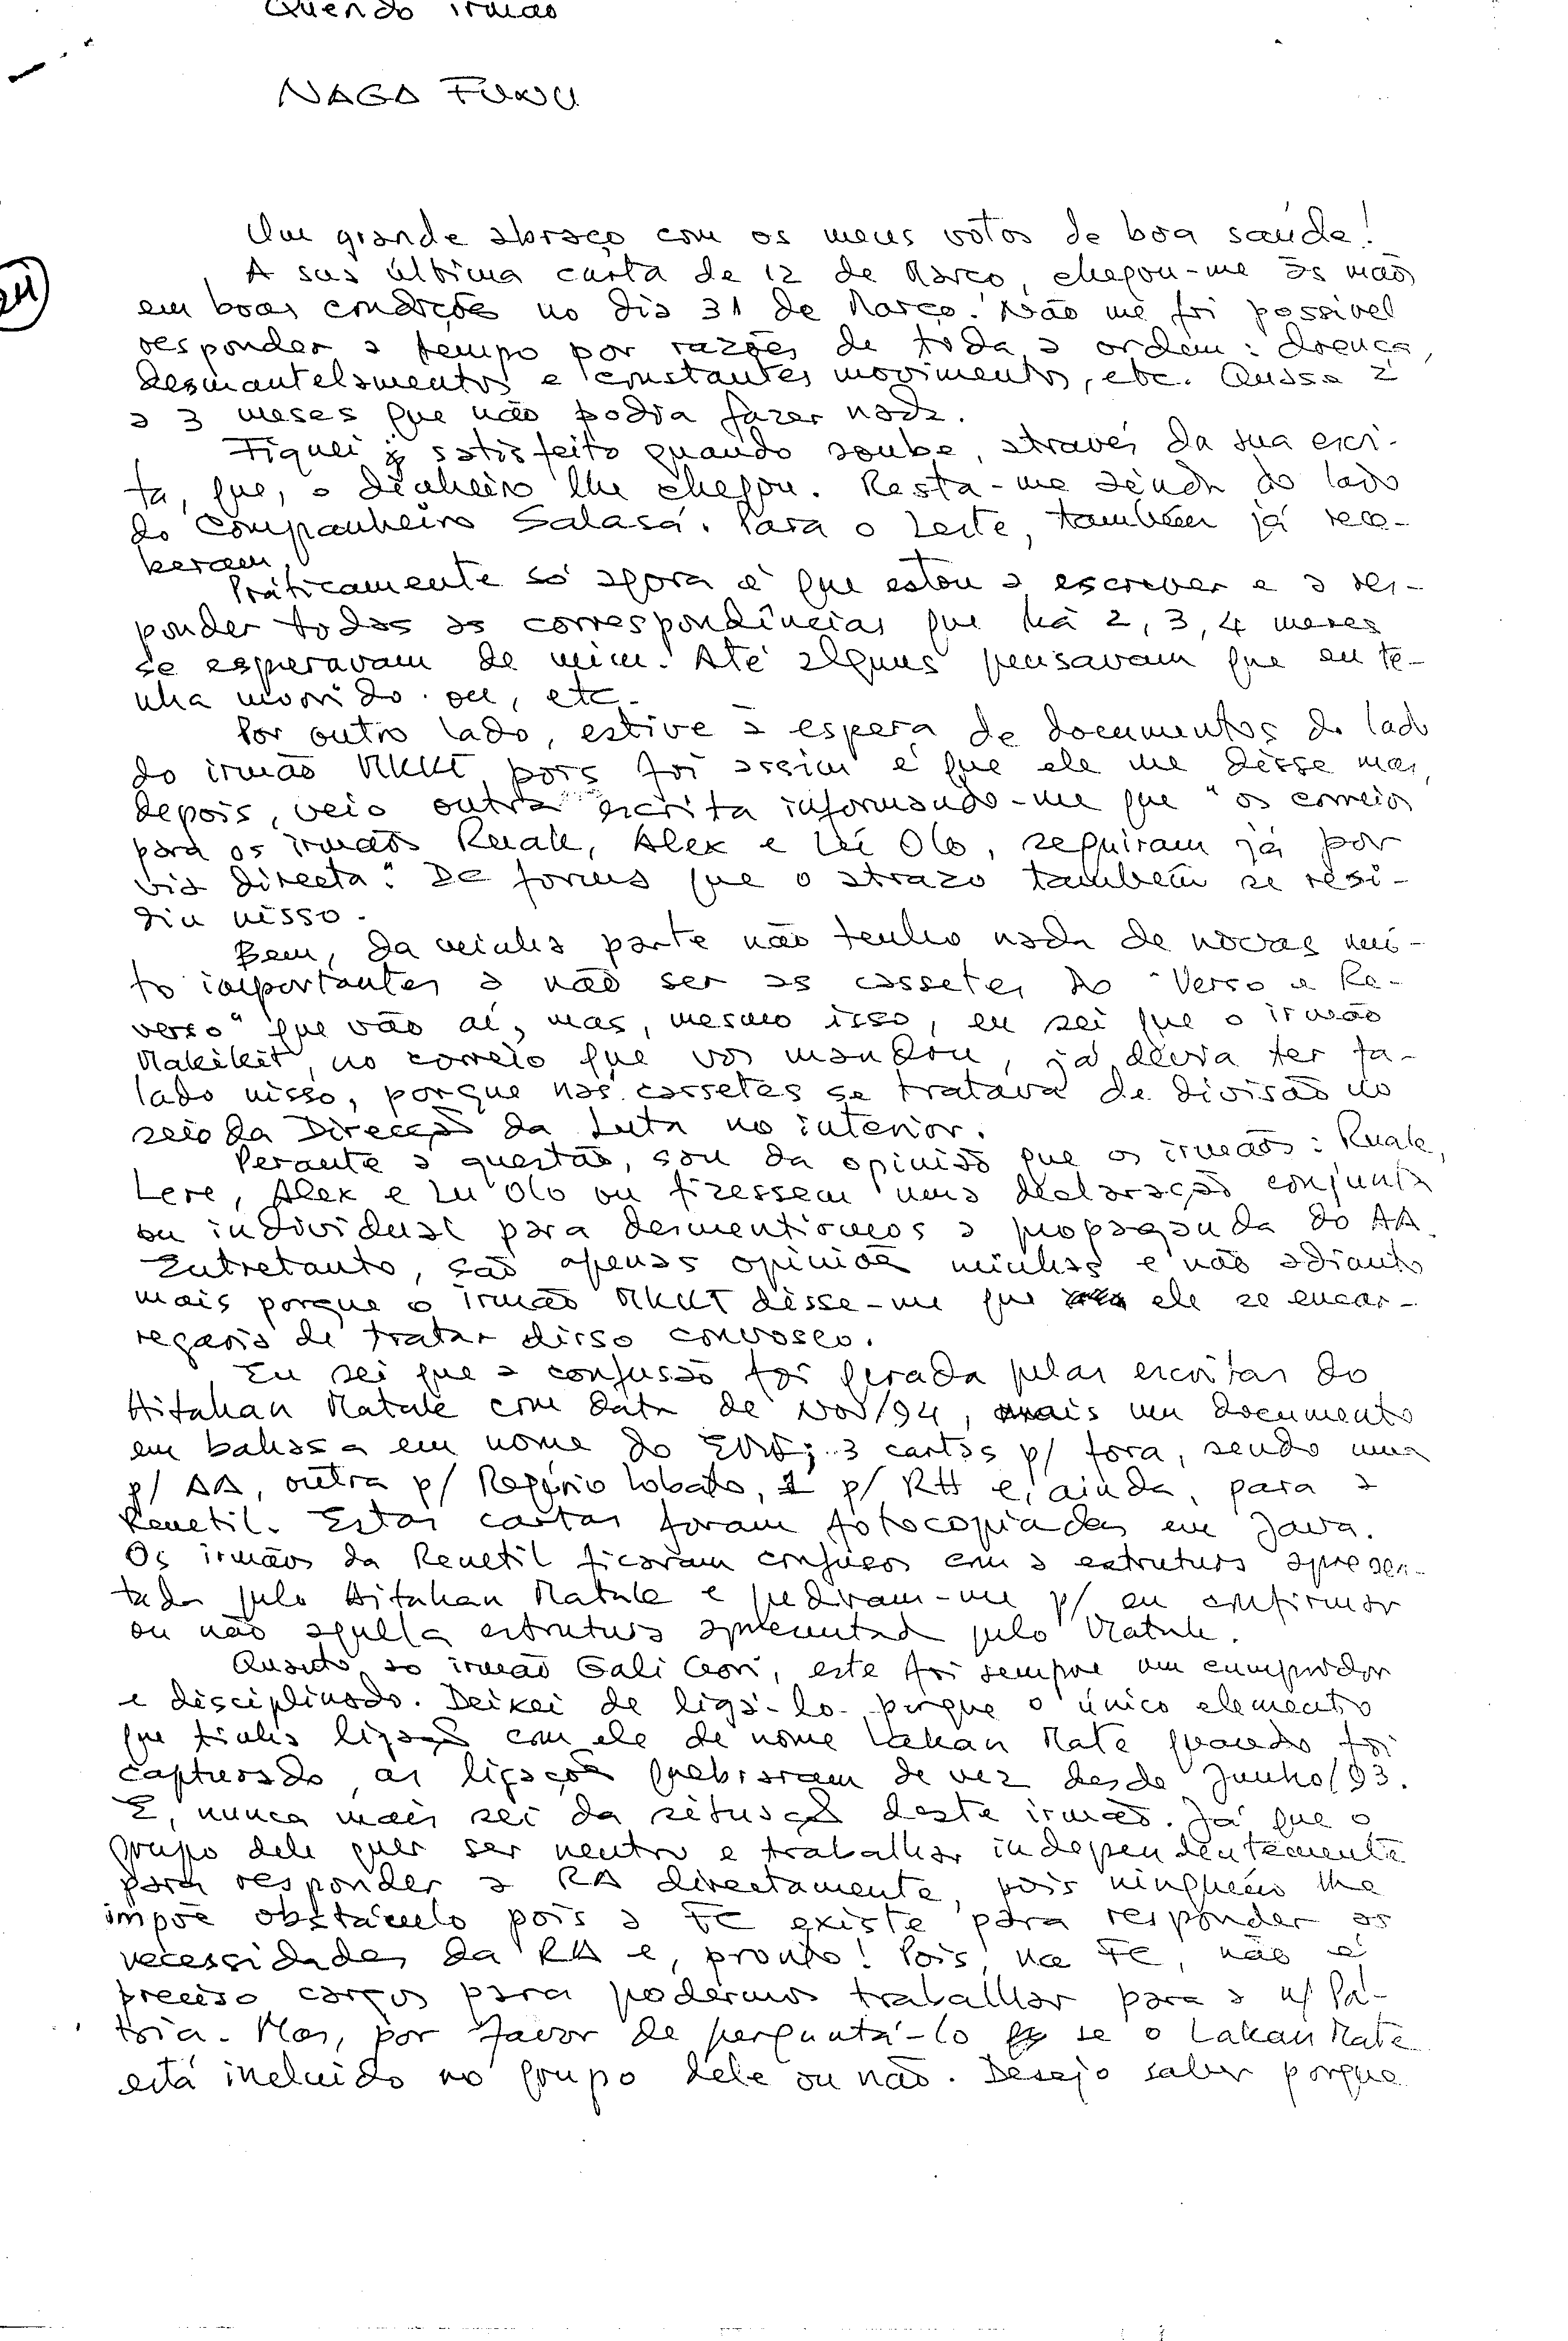 Querido irmão
NAGA FUNU
24
Um grande abraço com os meus votos de boa saúde!
A sua última carta de 12 de Março, chegou-me às mãos
em boas condições no dia 31 de Março. Não me foi possível
responder a tempo por razões de toda a ordem: doença,
desmantelamentos e constantes movimentos, etc. Quase 2
a 3 meses que não podia fazer nada.
Fiquei satisfeito quando soube, através da sua escri-
ta, que, o dinheiro lhe chegou. Resta-me ainda do lado
do Companheiro Salasá. Para o Leste, também já rece-
beram.
Práticamente só agora é que estou a escrever e a res-
ponder todas as correspondências que há 2, 3, 4 meses
se esperavam de mim. Até alguns pensavam que eu te-
nha morrido ou, etc.
Por outro lado, estive à espera de documentos do lado
do irmão MKKT, pois foi assim é que ele me disse mas,
depois, veio outra escrita informando-me que "os correios
para os irmãos Ruak, Alex e Lú Olo, seguiram já por
via directa". De forma que o atrazo também se resi-
diu nisso.
Bem, da minha parte não tenho nada de novas mui-
to importantes a não ser as cassetes do "Verso e Re-
verso" que vão aí, mas, mesmo isso, eu sei que o irmão
Makikit, no correio que vos mandou, já devia ter fa-
lado nisso, porque nas cassetes se tratava de divisão no
seio da Direcção da Luta no interior.
Perante a questão, sou da opinião que os irmãos: Ruak,
Lere, Alex e Lu Olo ou fizessem uma declaração conjunta
ou individual para desmentirmos a propaganda do AA.
Entretanto, são apenas opiniões minhas e não adianto
mais porque o irmão MKKT disse-me que ele se encar-
regaria de tratar disso convosco.
Eu sei que a confusão foi gerada pelas escritas do
Hitahan Matak com data de Nov/94, mais um documento
em bahasa em nome do 3 cartas p/ fora, sendo uma
p/ AA, outra p/ Rogério Lobato, 1 p/ RH e, ainda, para a
Renetil. Estas cartas foram fotocopiadas em Java.
Os irmãos da Renetil ficaram confusos com a estrutura apresen-
tada pelo Hitahan Matak e pediram-me p/ eu confirmar
ou não aquela estrutura apresentada pelo Matak.
Quanto ao irmão Gali Ceori, este foi sempre um cumpridor
e disciplinado. Deixei de ligá-lo porque o único elemento
que tinha ligação com ele de nome Lakan Mate quando foi
capturado, as ligações quebraram de vez desde Junho/93.
E, nunca mais sei da situação deste irmão. Já que o
grupo dele quer ser neutro e trabalhar independentemente
para responder a RA directamente, pois ninguém lhe
impõe obstáculo pois a FC existe para responder as
necessidades da RA e, pronto! Pois, na FC, não é
preciso cargos para podermos trabalhar para a n/ Pá-
tria. Mas, por favor de perguntá-lo se o Lakan Mate
está incluido no grupo dele ou não. Desejo saber porque